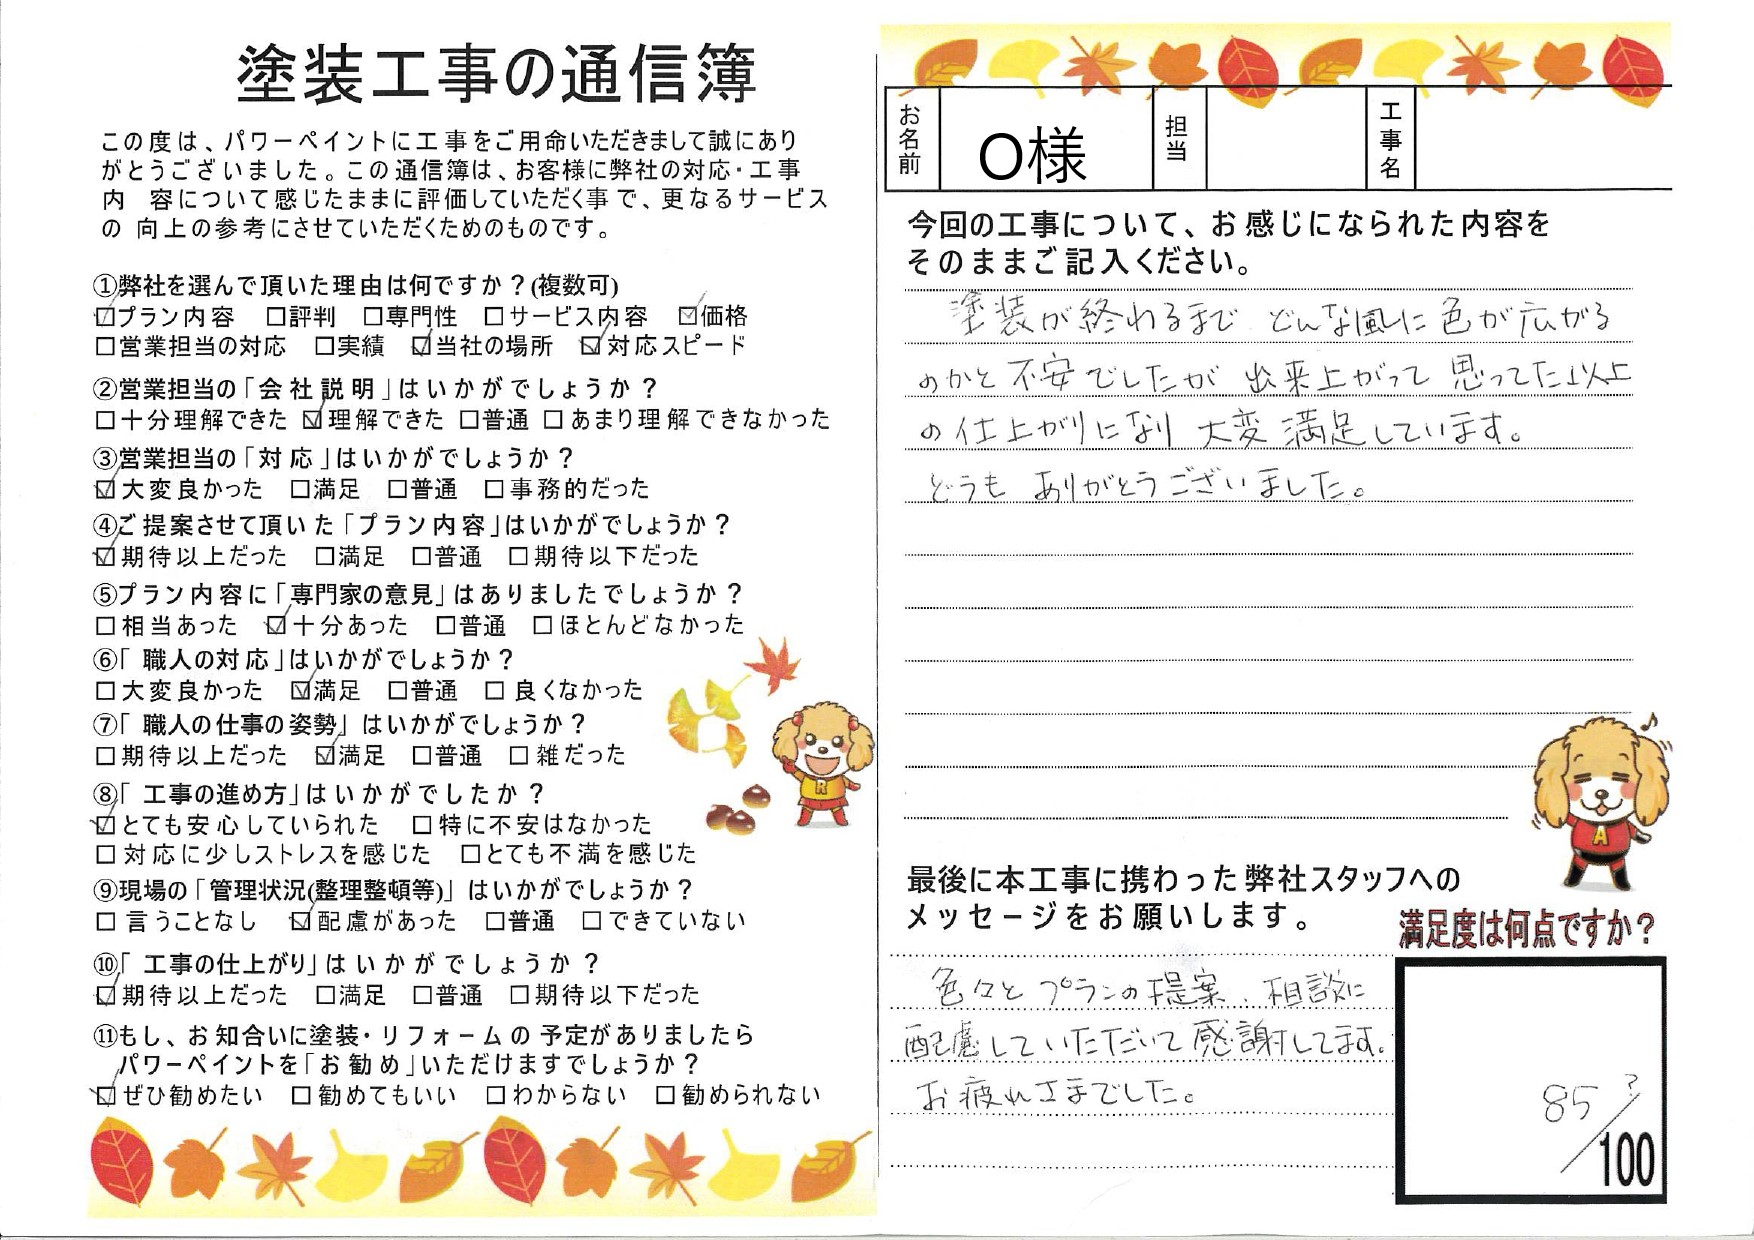 塗装工事の通信簿
この度は、パワーペイントに工事をご用命いただきまして誠にあり
がとうございました。この通信簿は、お客様に弊社の対応・工事
内 容について感じたままに評価していただく事で、更なるサービス
の 向上の参考にさせていただくためのものです。
①弊社を選んで頂いた理由は何ですか？(複数可)
☑プラン内容 □評判 □専門性 □サービス内容 ☑価格
□営業担当の対応 □実績 ☑当社の場所 ☑対応スピード
②営業担当の「会社説明」はいかがでしょうか？
□十分理解できた ☑理解できた □普通 □あまり理解できなかった
③営業担当の「対応」はいかがでしょうか？
☑大変良かった □満足 □普通 □事務的だった
④ご提案させて頂いた「プラン内容」はいかがでしょうか？
☑期待以上だった □満足 □普通 □期待以下だった
⑤プラン内容に「専門家の意見」はありましたでしょうか？
□相当あった ☑十分あった □普通 □ほとんどなかった
⑥「職人の対応」はいかがでしょうか？
□大変良かった ☑満足 □普通 □良くなかった
⑦「職人の仕事の姿勢」はいかがでしょうか？
□期待以上だった ☑満足 □普通 □雑だった
⑧「工事の進め方」はいかがでしたか？
☑とても安心していられた □特に不安はなかった
□対応に少しストレスを感じた □とても不満を感じた
⑨現場の「管理状況(整理整頓等)」はいかがでしょうか？
□言うことなし ☑配慮があった □普通 □できていない
⑩「工事の仕上がり」はいかがでしょうか？
☑期待以上だった □満足 □普通 □期待以下だった
⑪もし、お知合いに塗装・リフォームの予定がありましたら
パワーペイントを「お勧め」いただけますでしょうか？
☑ぜひ勧めたい □勧めてもいい □わからない □勧められない
R
お名前 O様 担当 工事名
今回の工事について、お感じになられた内容を
そのままご記入ください。
塗装が終わるまで どんな風に色が広がる
のかと不安でしたが 出来上がって 思ってた以上
の仕上がりになり 大変満足しています。
どうも ありがとうございました。
A
最後に本工事に携わった弊社スタッフへの
メッセージをお願いします。
満足度は何点ですか？
色々とプランの提案、相談に
配慮していただいて感謝してます。
お疲れさまでした。
85?
/100